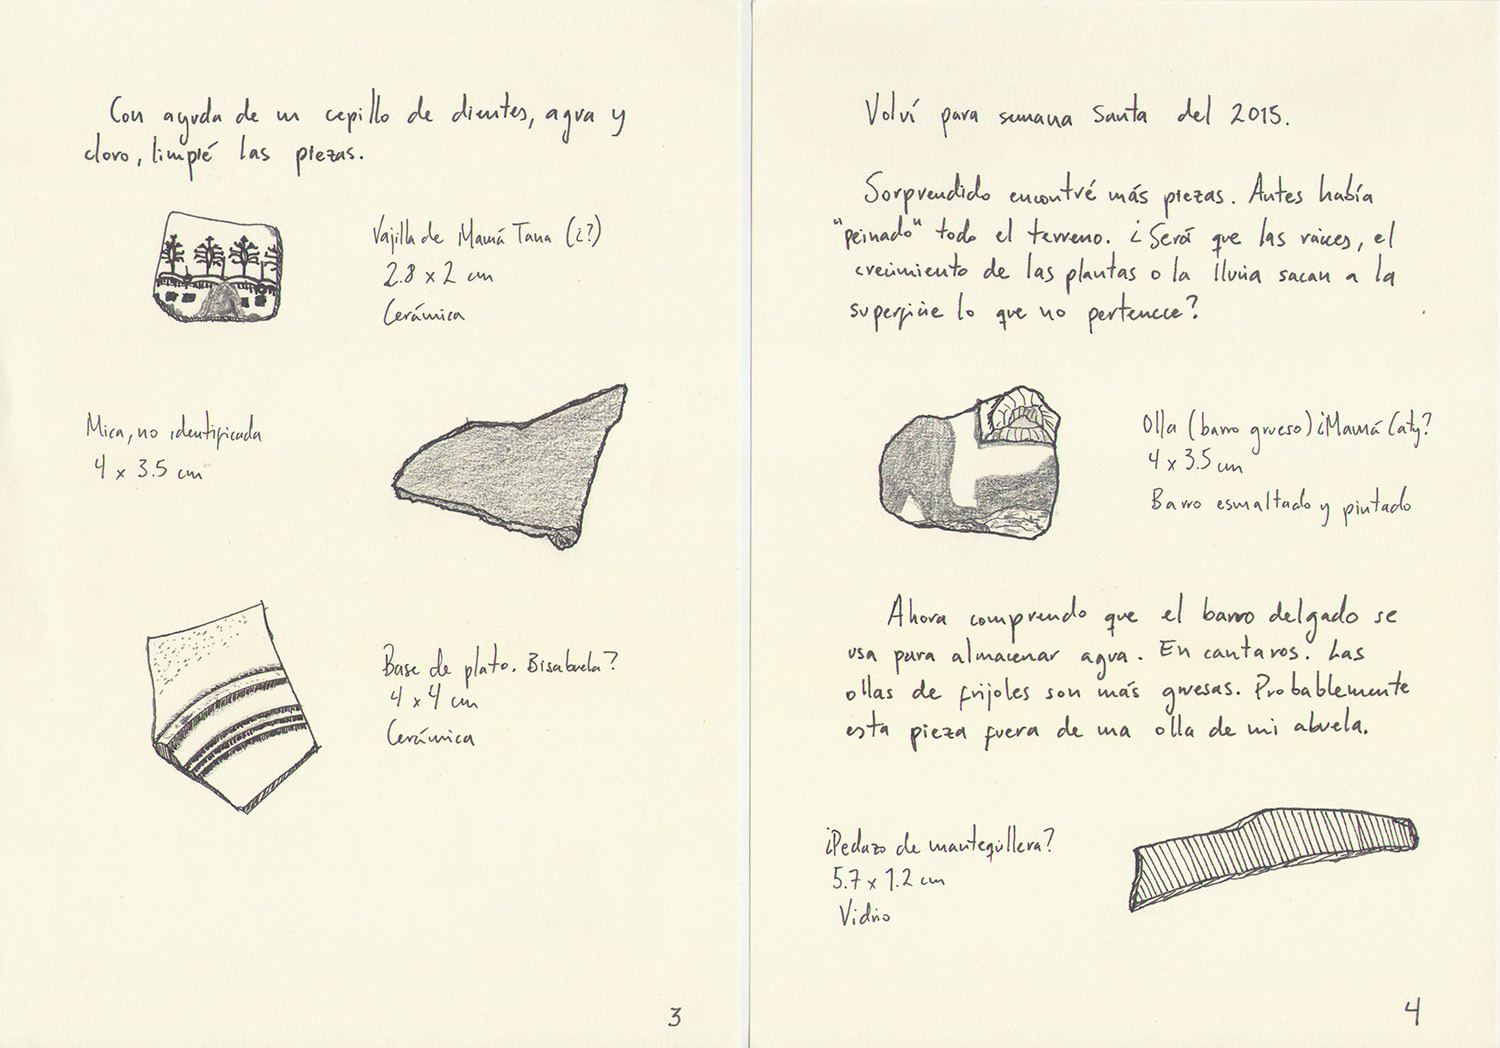 Con ayuda de un cepillo de dientes, agua y
cloro, limpié las piezas.
Vajilla de Mamá Tana (¿?)
2.8 x 2 cm
Cerámica
Mica, no identificada
4 x 3.5 cm
Base de plato. Bisabuela?
4 x 4 cm
Cerámica
3
Volví para semana Santa del 2015.
Sorprendido encontré más piezas. Antes había
"peinado" todo el terreno. ¿Será que las raíces, el
crecimiento de las plantas o la lluvia sacan a la
superficie lo que no pertenece?
Olla (barro grueso) ¿Mamá Caty?
4 x 3.5 cm
Barro esmaltado y pintado
Ahora comprendo que el barro delgado se
usa para almacenar agua. En cantaros. Las
ollas de frijoles son más gruesas. Probablemente
esta pieza fuera de una olla de mi abuela.
¿Pedazo de mantequillera?
5.7 x 1.2 cm
Vidrio
4